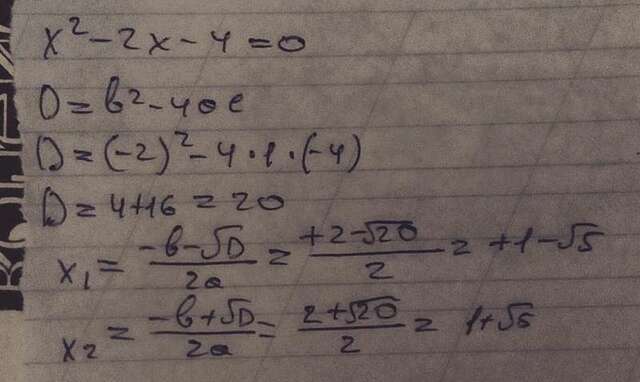 x² - 2x - 4 = 0
D = b² - 4ac
D = (-2)² - 4 · 1 · (-4)
D = 4+16 = 20
x₁ = (-b-√D)/(2a) = (+2-√20)/2 = +1-√5
x₂ = (-b+√D)/(2a) = (2+√20)/2 = 1+√5